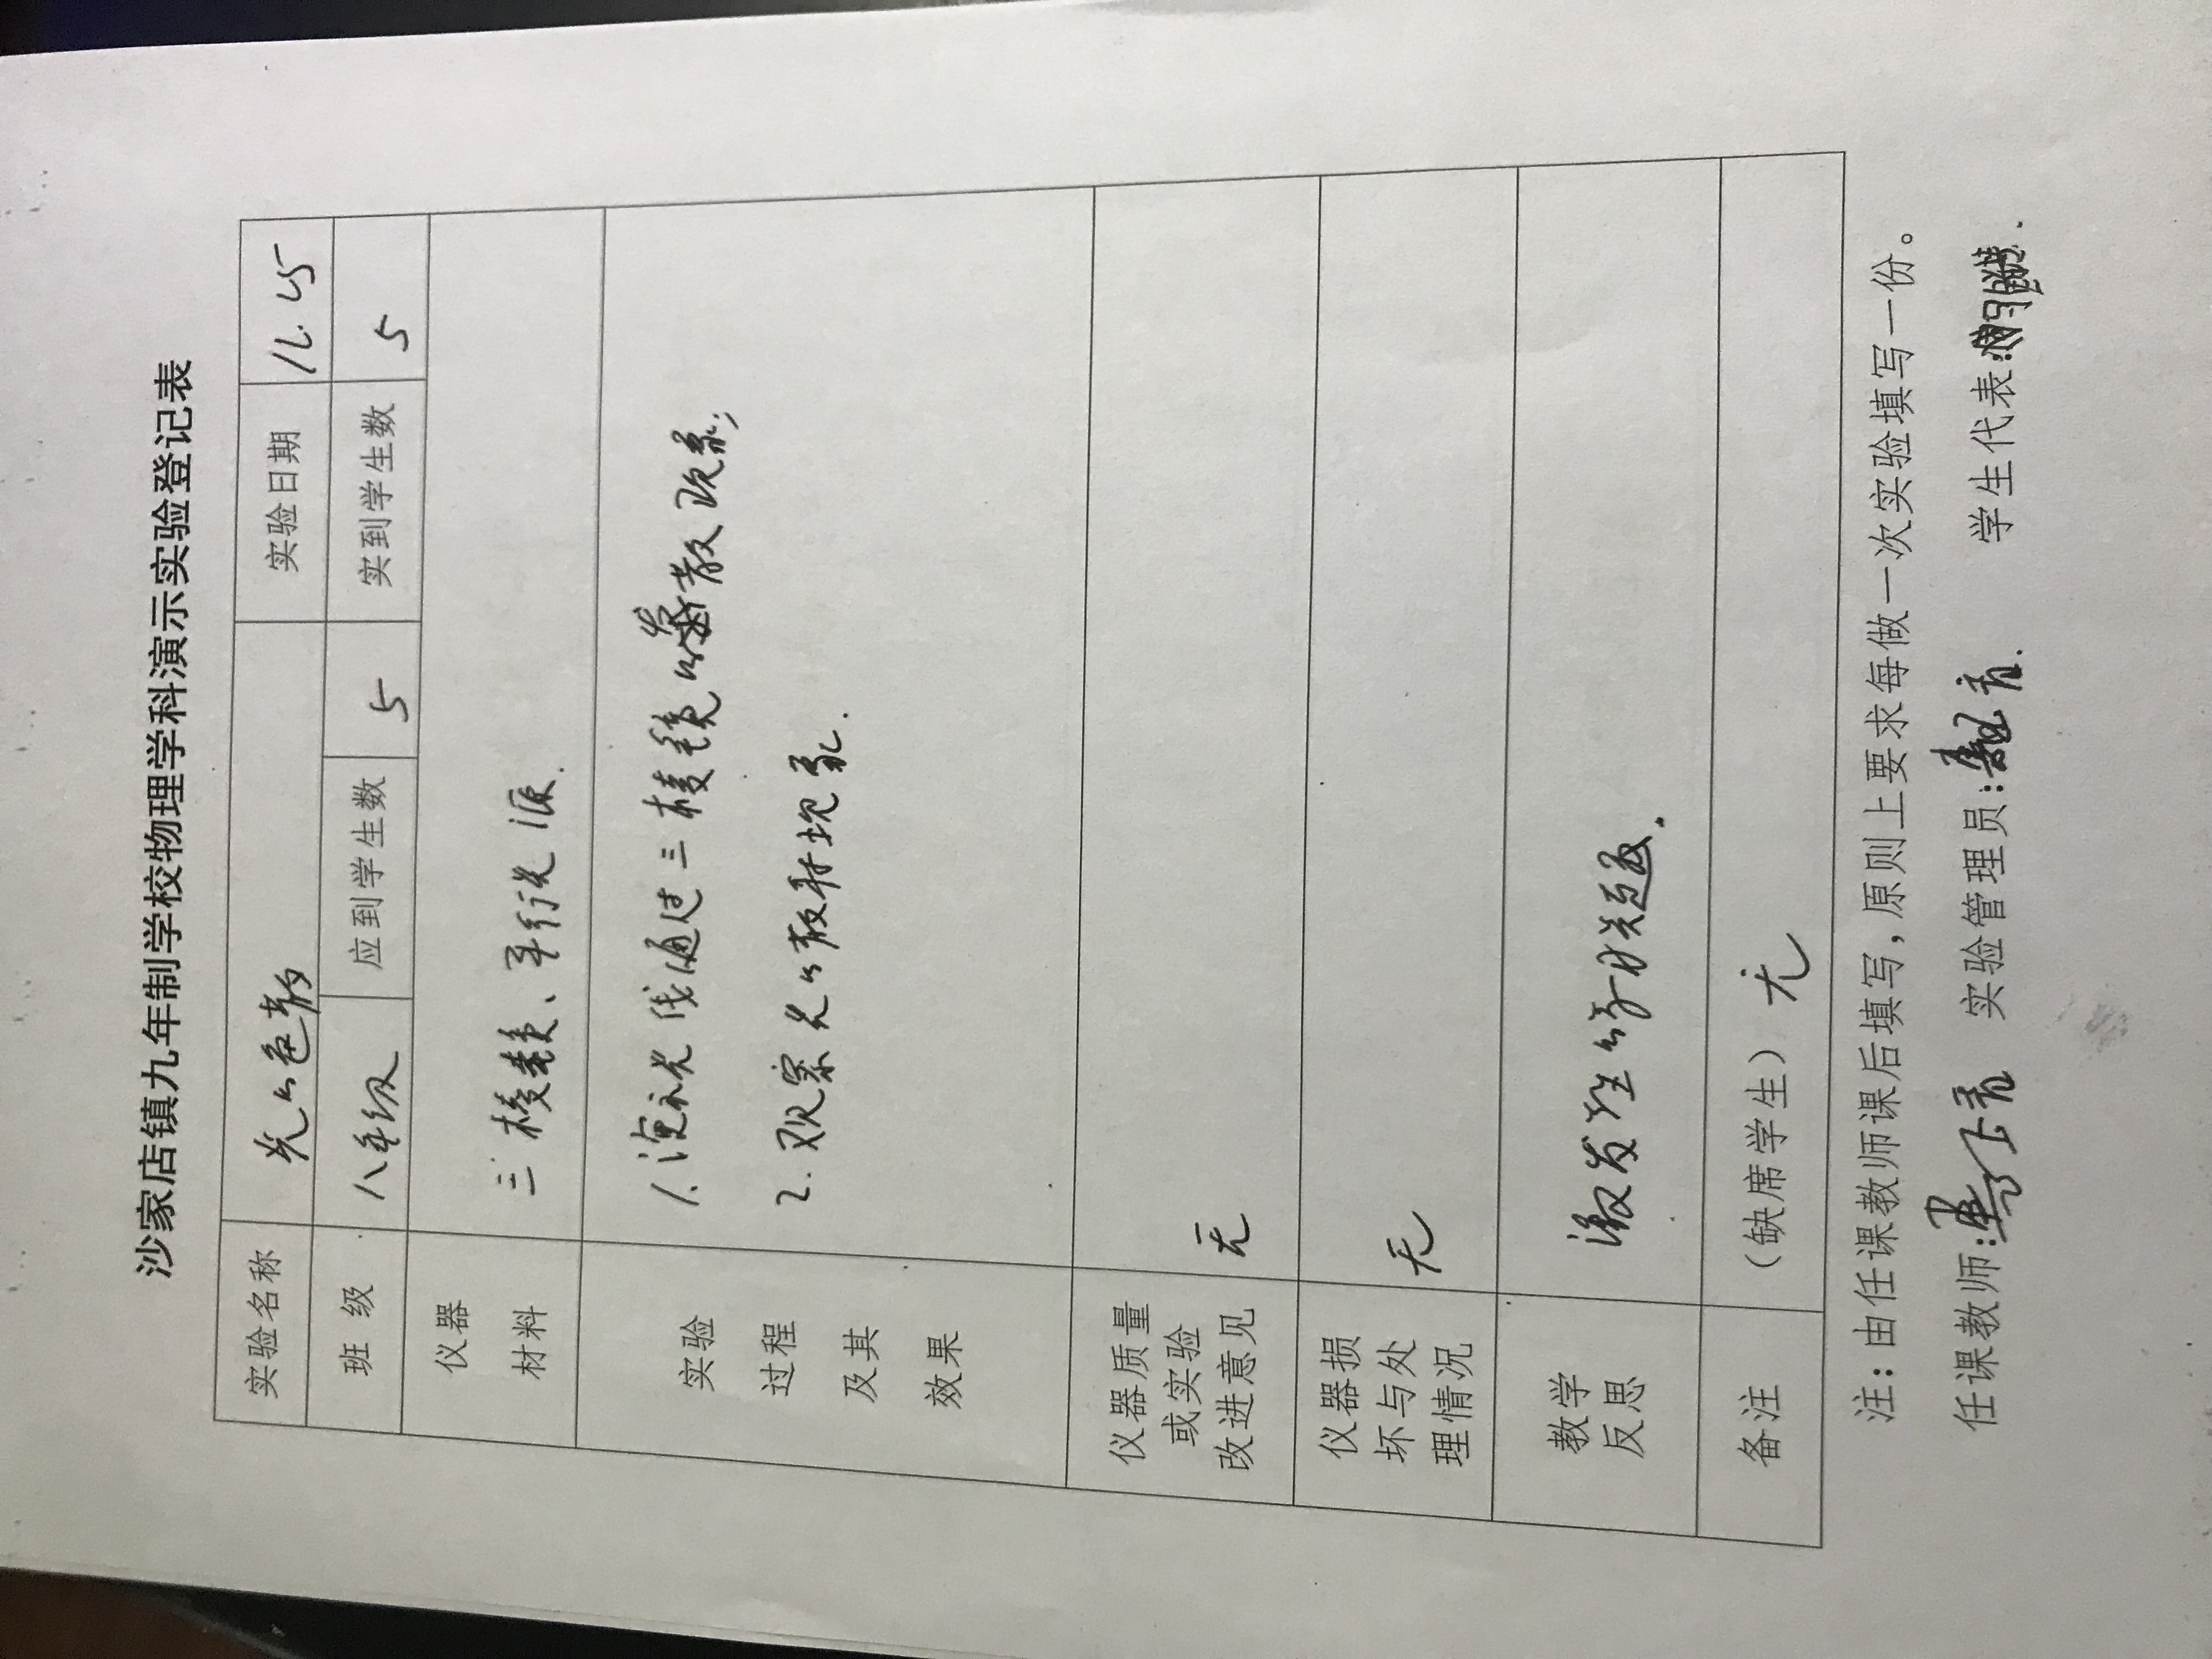 沙家店镇九年制学校物理学科演示实验登记表
实验名称 光的色散 实验日期
班 级 八年级 应到学生数 5 实到学生数 5
仪器
材料
三棱镜、平行光源.
实验
过程
及其
效果
1.演示光线通过三棱镜的 散现象;
2.观察光的散射现象.
仪器质量
或实验
改进意见
无
仪器损
坏与处
理情况
无
教学
反思
激发 生的
备注 (缺席学生) 无
注：由任课教师课后填写，原则上要求每做一次实验填写一份。
任课教师: 实验管理员: 学生代表: